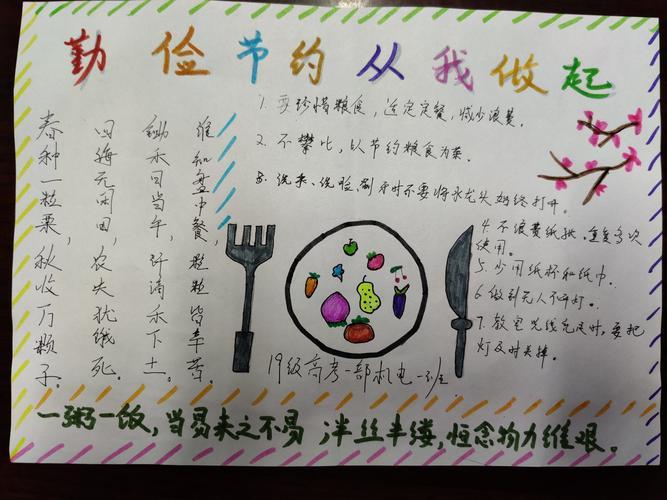 勤俭节约从我做起
春种一粒粟,秋收万颗子。
四海无闲田,农夫犹饿死。
锄禾日当午,汗滴禾下土。
谁知盘中餐,粒粒皆辛苦。
1. 要珍惜粮食,适定定餐,减少浪费。
2. 不攀比,以节约粮食为荣。
3. 洗、洗脸、刷牙时不要将水龙头始终打开。
4. 不浪费纸张,重复多次
使用。
5. 少用纸杯和纸巾。
6 做到无人不开灯。
7. 教室光线充足时,要把
灯及时关掉。
19级高考一部机电一班
一粥一饭,当易来之不易 半丝半缕,恒念物力维艰。